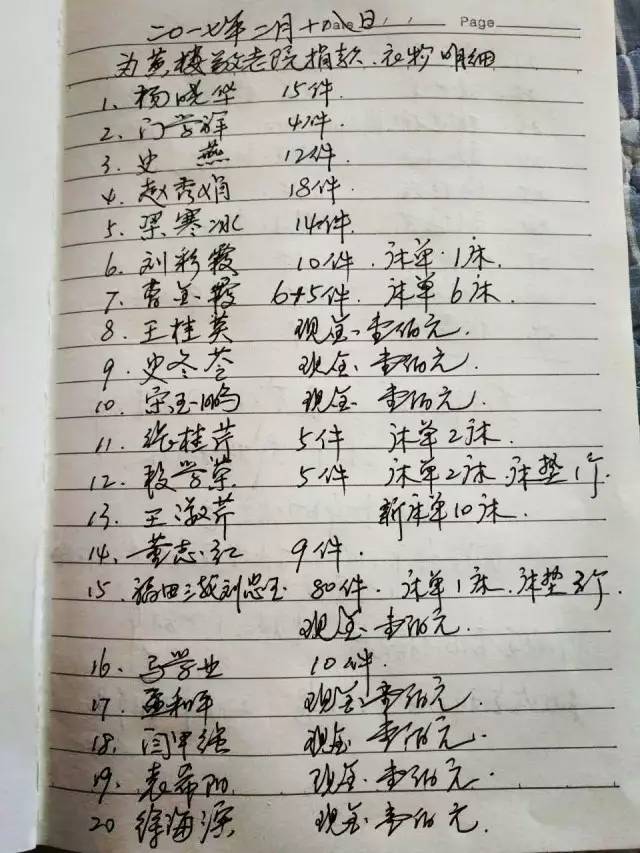 Date Page
二〇一七年二月十八日
为黄楼敬老院捐款.衣物明细
1、杨晓华 15件.
2、门学辉 4件.
3、史 燕 12件.
4、赵秀娟 18件.
5、梁寒冰 14件.
6、刘彩霞 10件.床单.1床.
7、曹金霞 6+5件. 床单6床.
8、王桂英 现金.壹佰元.
9.史冬苓 现金.壹佰元.
10.宋玉鸣 现金.壹佰元.
11.张桂芹 5件 床单2床.
12.段学荣 5件 床单2床.床垫1个.
13.王淑芹 新床单10床.
14.黄志红 9件.
15.福田三教刘忠玉 80件.床单1床.床垫3个.
现金.壹佰元.
16.马学业 10件.
17.孟和平 现金.壹佰元.
18.闫甲强 现金 壹佰元.
19.袁希阳 现金.壹佰元.
20 徐海源 现金.壹佰元.